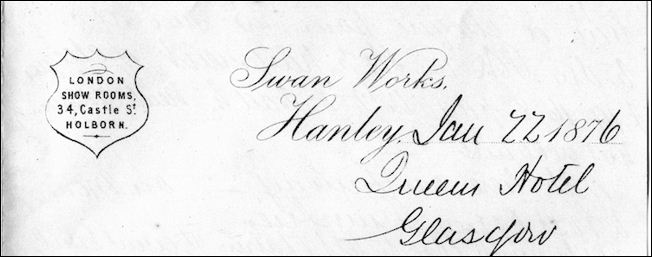 LONDON
SHOW ROOMS,
34, Castle St
HOLBORN.
Swan Works,
Hanley, Jan 22 1876
Queens Hotel
Glasgow